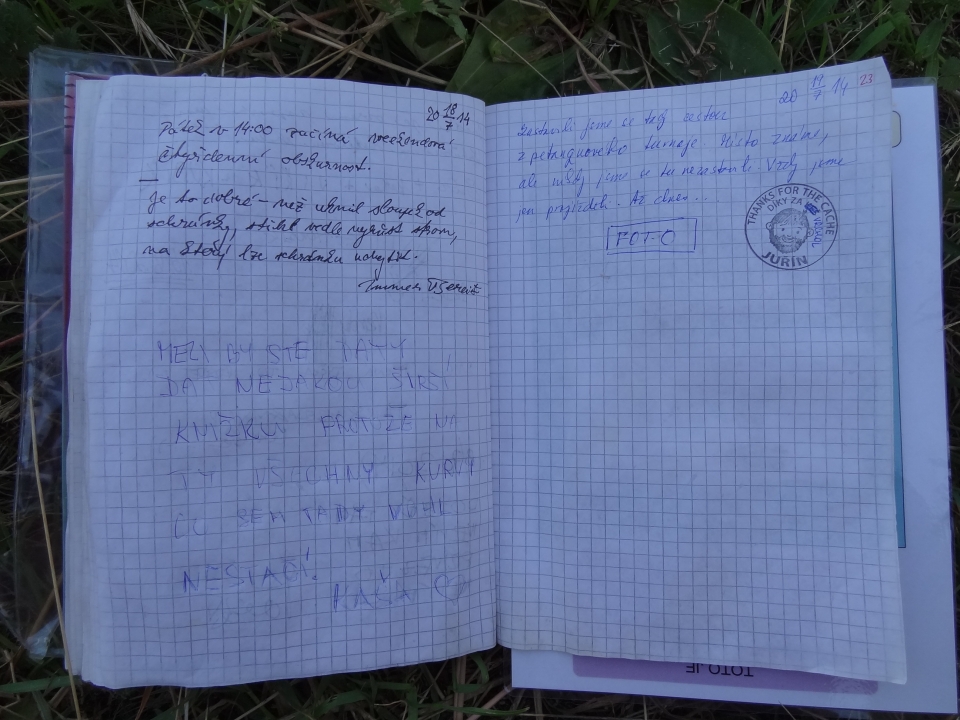 20 18/7 14
v 14:00 začíná
čtyřdenní obskurnost.
Je to dobré – než
schránky, stihl vedle vyrůst strom,
na který lze schránku
MĚLI BY STE TADY
DAT NEJAKOU ŠIRŠÍ
KNIŽKU PROTOŽE NA
TY VŠECHNY KURVY
CO SEM TADY
NESTAČÍ!
KAČA
20 19/7 14 23
Zastavili jsme se tady cestou
z petanqueového turnaje. Místo známe,
ale nikdy jsme se tu nezastavili. Vždy jsme
jen projížděli. Až dnes...
FOTO
THANKS FOR THE CACHE
DÍKY ZA
JUŘÍN
TOTO JE